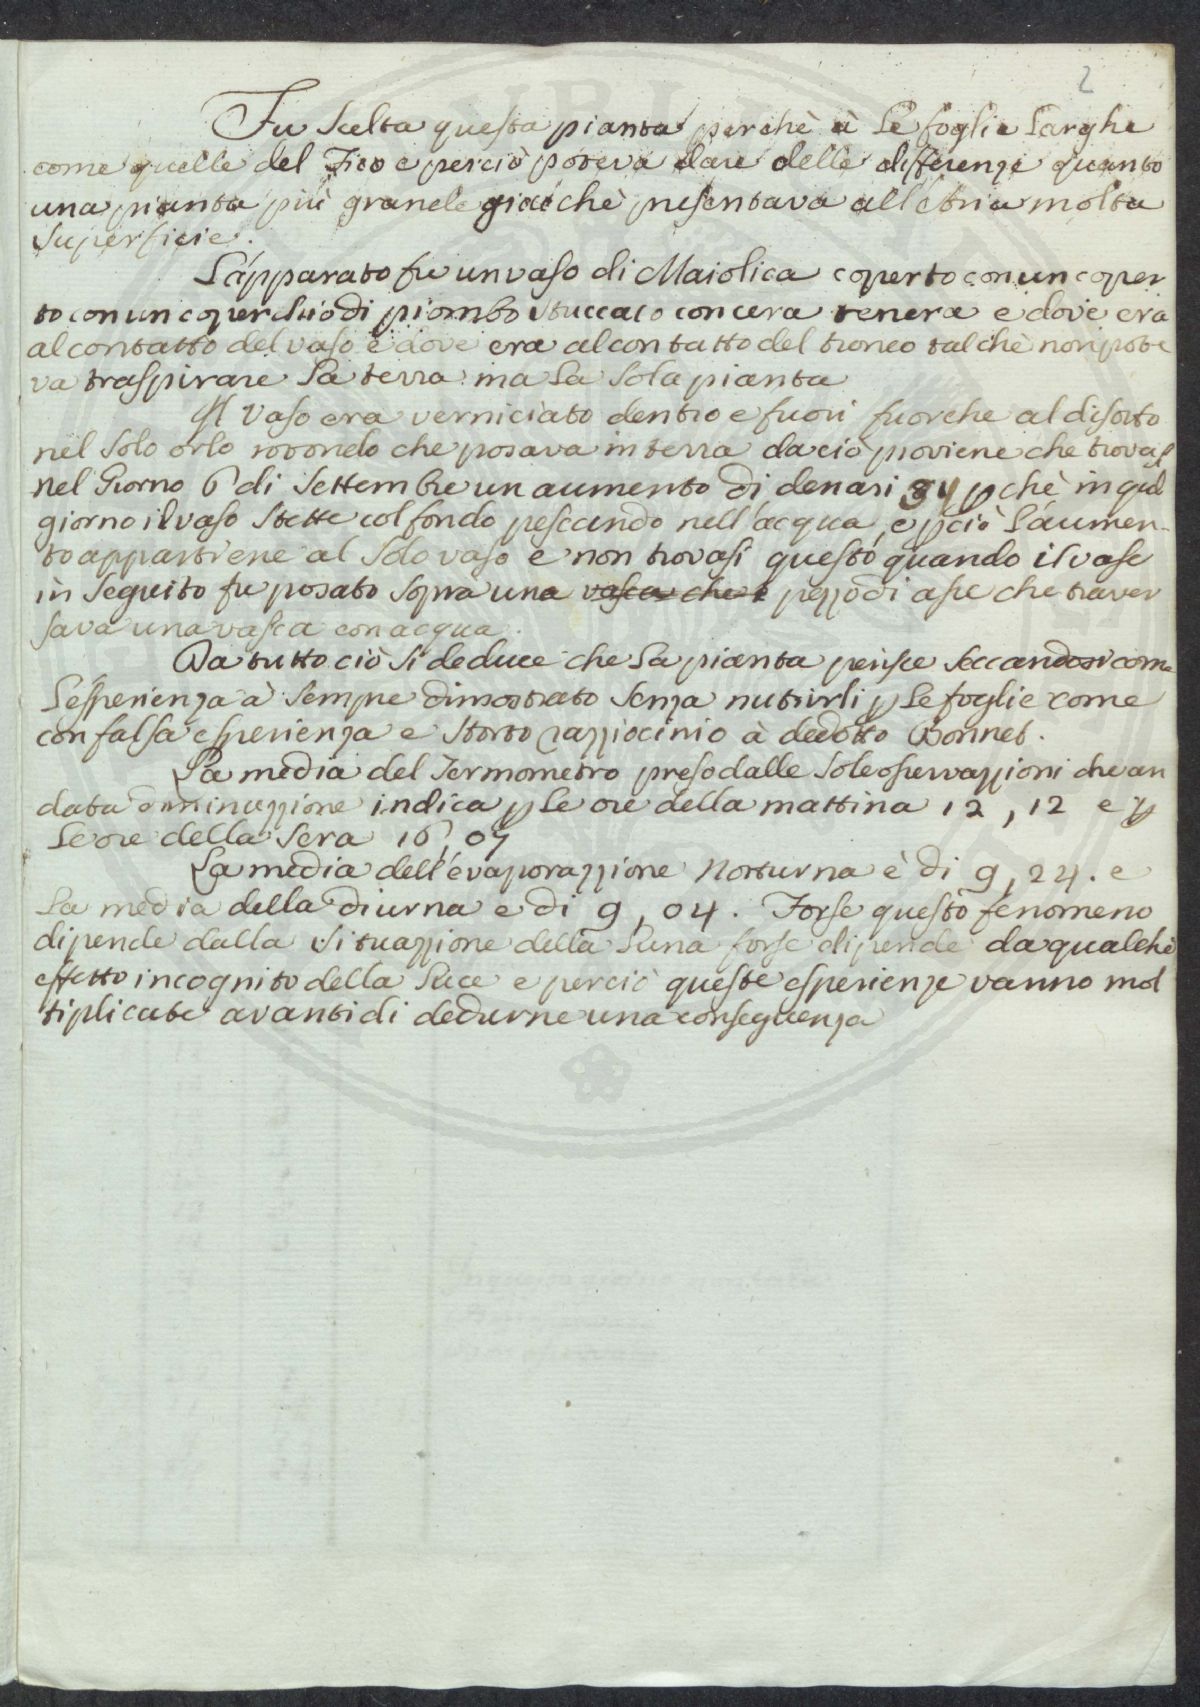 2
Fu scelta questa pianta perchè à le foglie larghe
come quelle del Fico e perciò poteva dare delle differenze quanto
una pianta più grande giacchè presentava all'Aria molta
superficie.
L'apparato fu un vaso di Maiolica coperto con un coper
to con un coperchio di piombo stuccato con cera tenera e dove era
al contatto del vaso e dove era al contatto del tronco talchè non pote
va traspirare la terra ma la sola pianta
Il Vaso era verniciato dentro e fuori fuorche al disotto
nel solo orlo rotondo che posava in terra da ciò proviene che trovasi
nel Giorno 6 di Settembre un aumento di denari 84 p chè in quel
giorno il vaso stette col fondo pescando nell'acqua, e p ciò l'aumen-
to appartiene al solo vaso e non trovasi questo quando il vaso
in seguito fu posato sopra una vasca che pezzo di asse che traver
sava una vasca con acqua.
Da tutto ciò si deduce che la pianta perisce seccandosi come
l'esperienza à sempre dimostrato senza nutrirsi p le foglie come
con falsa esperienza e storto razziocinio à dedotto Bonnet.
La media del Termometro preso dalle sole osservazzioni che an
data diminuzzione indica p le ore della mattina 12,12 e p
le ore della sera 16,07
La media dell'evaporazzione Notturna è di 9,24. e
la media della diurna e di 9,04. Forse questo fenomeno
dipende dalla situazzione della Luna forse dipende da qualche
effetto incognito della luce e perciò queste esperienze vanno mol
tiplicate avanti di dedurne una conseguenza